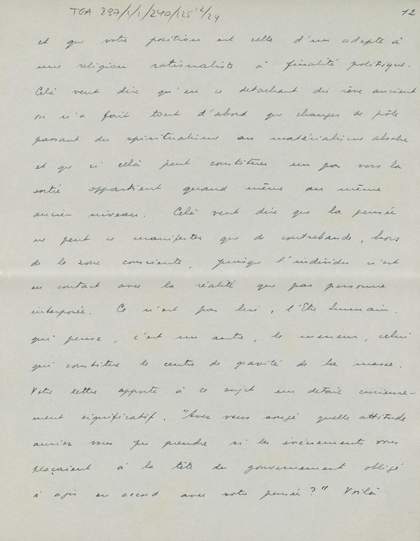 TGA 797/1/1/240/125 2/24 12
et que votre position est celle d'un adepte à
une religion rationaliste à finalité politique.
Celà veut dire qu'en se detachant du rêve ancien
on n'a fait tout d'abord que changer de pôle
passant du spiritualisme au matérialisme absolu
et que si celà peut constituer un pas vers la
sortie appartient quand même au même
ancien niveau. Celà veut dire que la pensée
ne peut se manifester que de contrebande, hors
de la zone consciente, puisque l'individu n'est
en contact avec la réalité que par personne
interposée. Ce n'est pas lui, l'Etre humain.
qui pense, c'est un autre, le meneur, celui
qui constitue le centre de gravité de la masse.
Votre lettre apporte à ce sujet un detail curieuse-
ment significatif. "Avez vous songé quelle attitude
auriez vous pu prendre si les évènements vous
plaçaient à la tête du gouvernement obligé
à agir en accord avec votre pensée?" Voilà